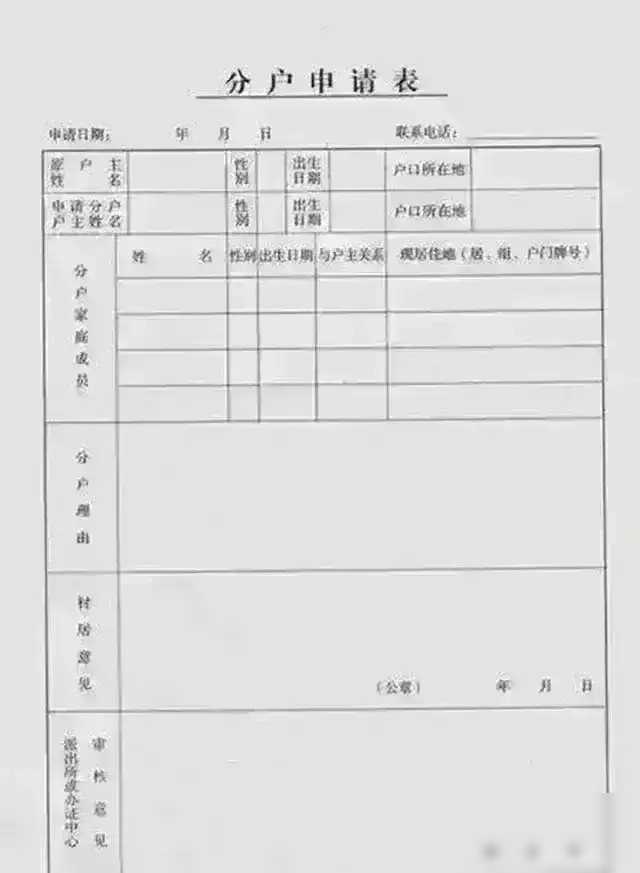 分户申请表
申请日期： 年 月 日 联系电话：
原户主姓名 性别 出生日期 户口所在地
申请分户户主姓名 性别 出生日期 户口所在地
分户家庭成员
姓 名 性别 出生日期 与户主关系 现居住地（居、组、户门牌号）
分户理由
村居意见
（公章） 年 月 日
派出所或办证中心
审核意见